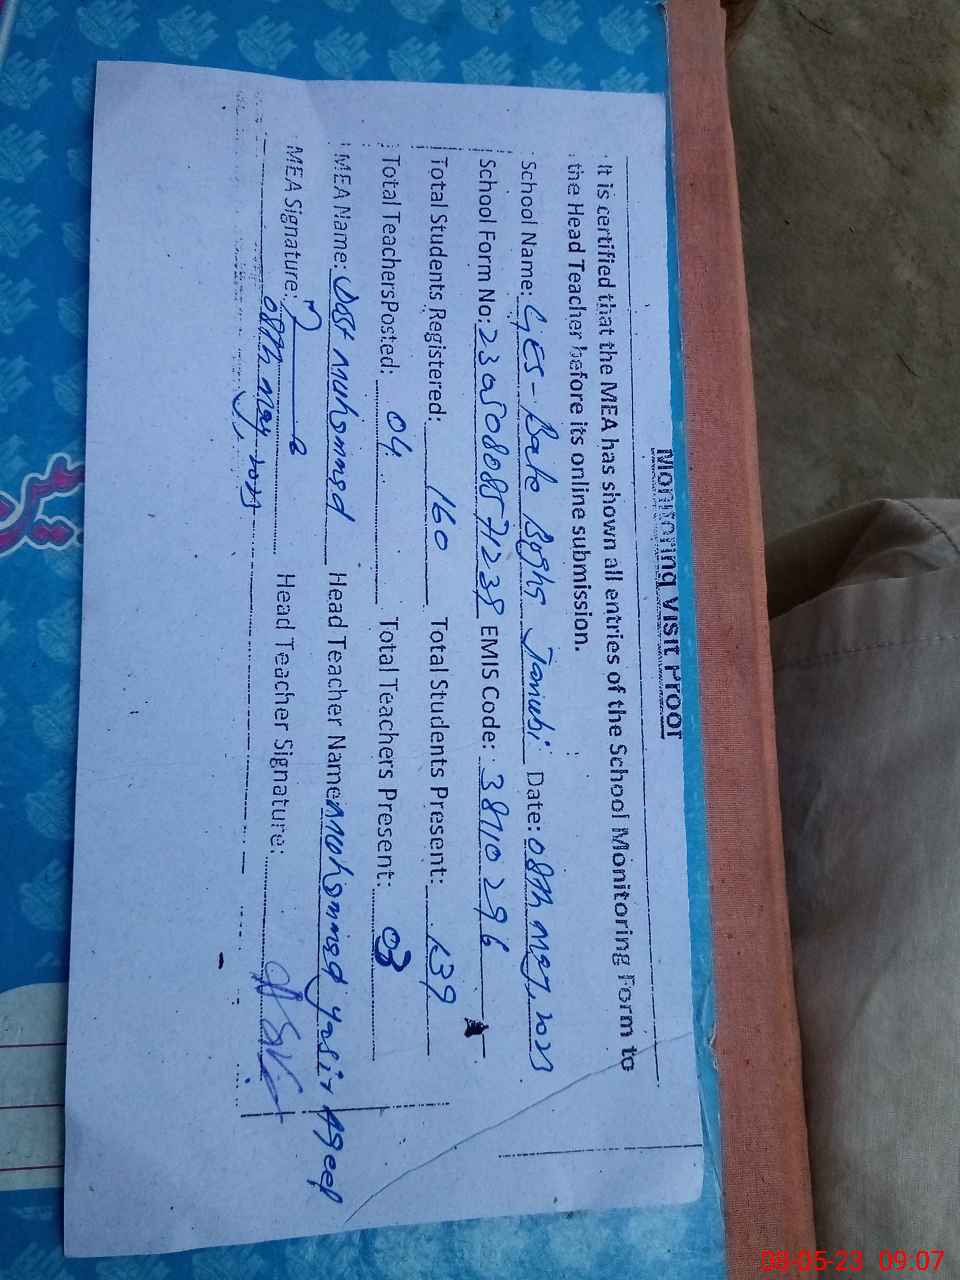 Monitoring Visit Proof
It is certified that the MEA has shown all entries of the School Monitoring Form to
the Head Teacher before its online submission.
School Name: GES- Bate Bagha Janubi Date: 08th May, 2023
School Form No: EMIS Code: 38110296
Total Students Registered: 160 Total Students Present: 139
Total TeachersPosted: 04 Total Teachers Present: 03
MEA Name: Dost Muhammad Head Teacher Name Muhammad Yasir Aqeel
MEA Signature: Head Teacher Signature:
08th May, 2023
08-05-23 09:07